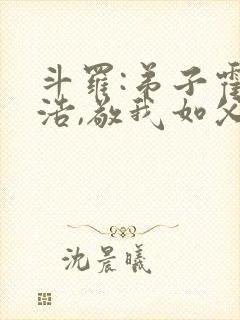 斗羅:弟子霍
浩,敬我如父
沈晨曦